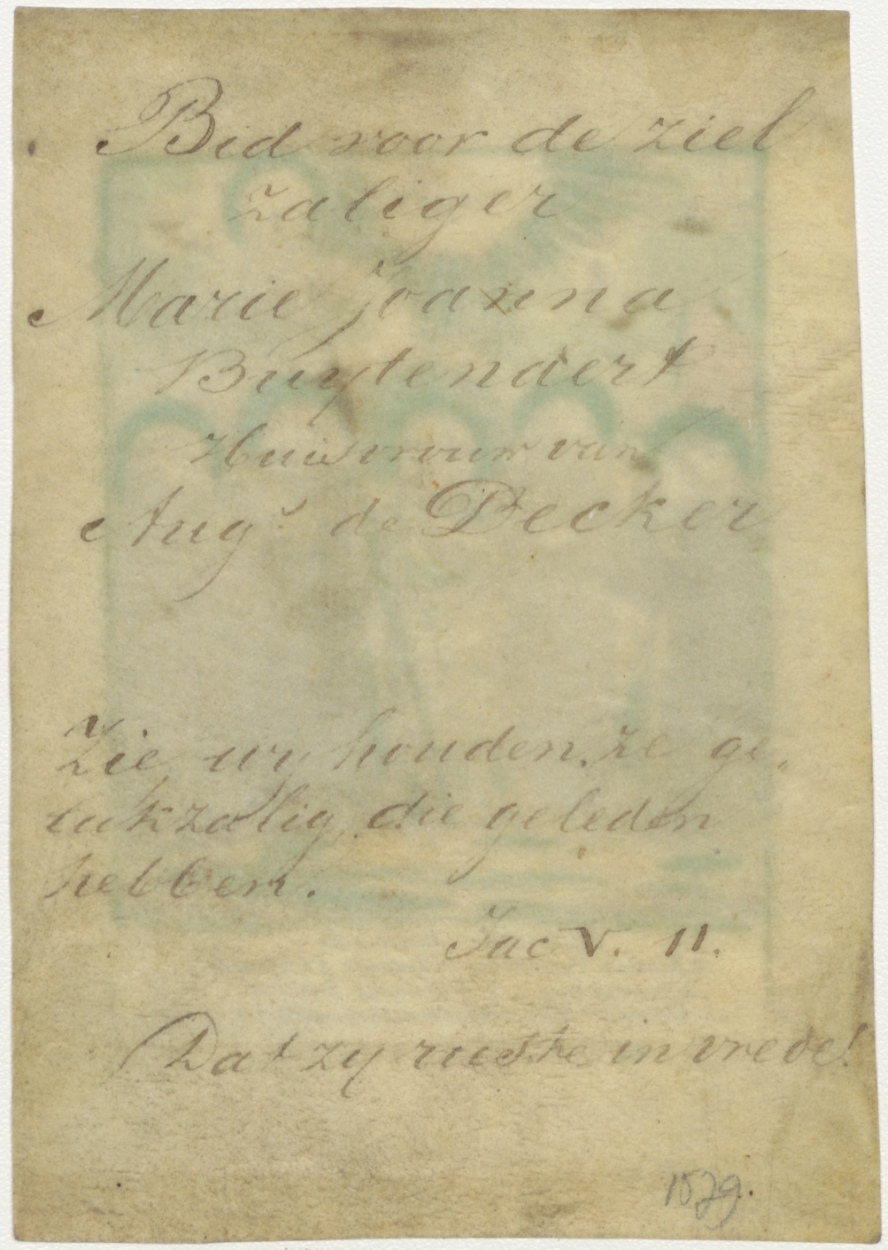 Bid voor de ziel
zaliger
Marie Joanna
Buytendert
Huisvrouw van
Aug.ˢ de Decker
Zie wy houden ze ge„
lukzalig, die geleden
hebben.
Jac V. 11.
Dat zy ruste in vrede!